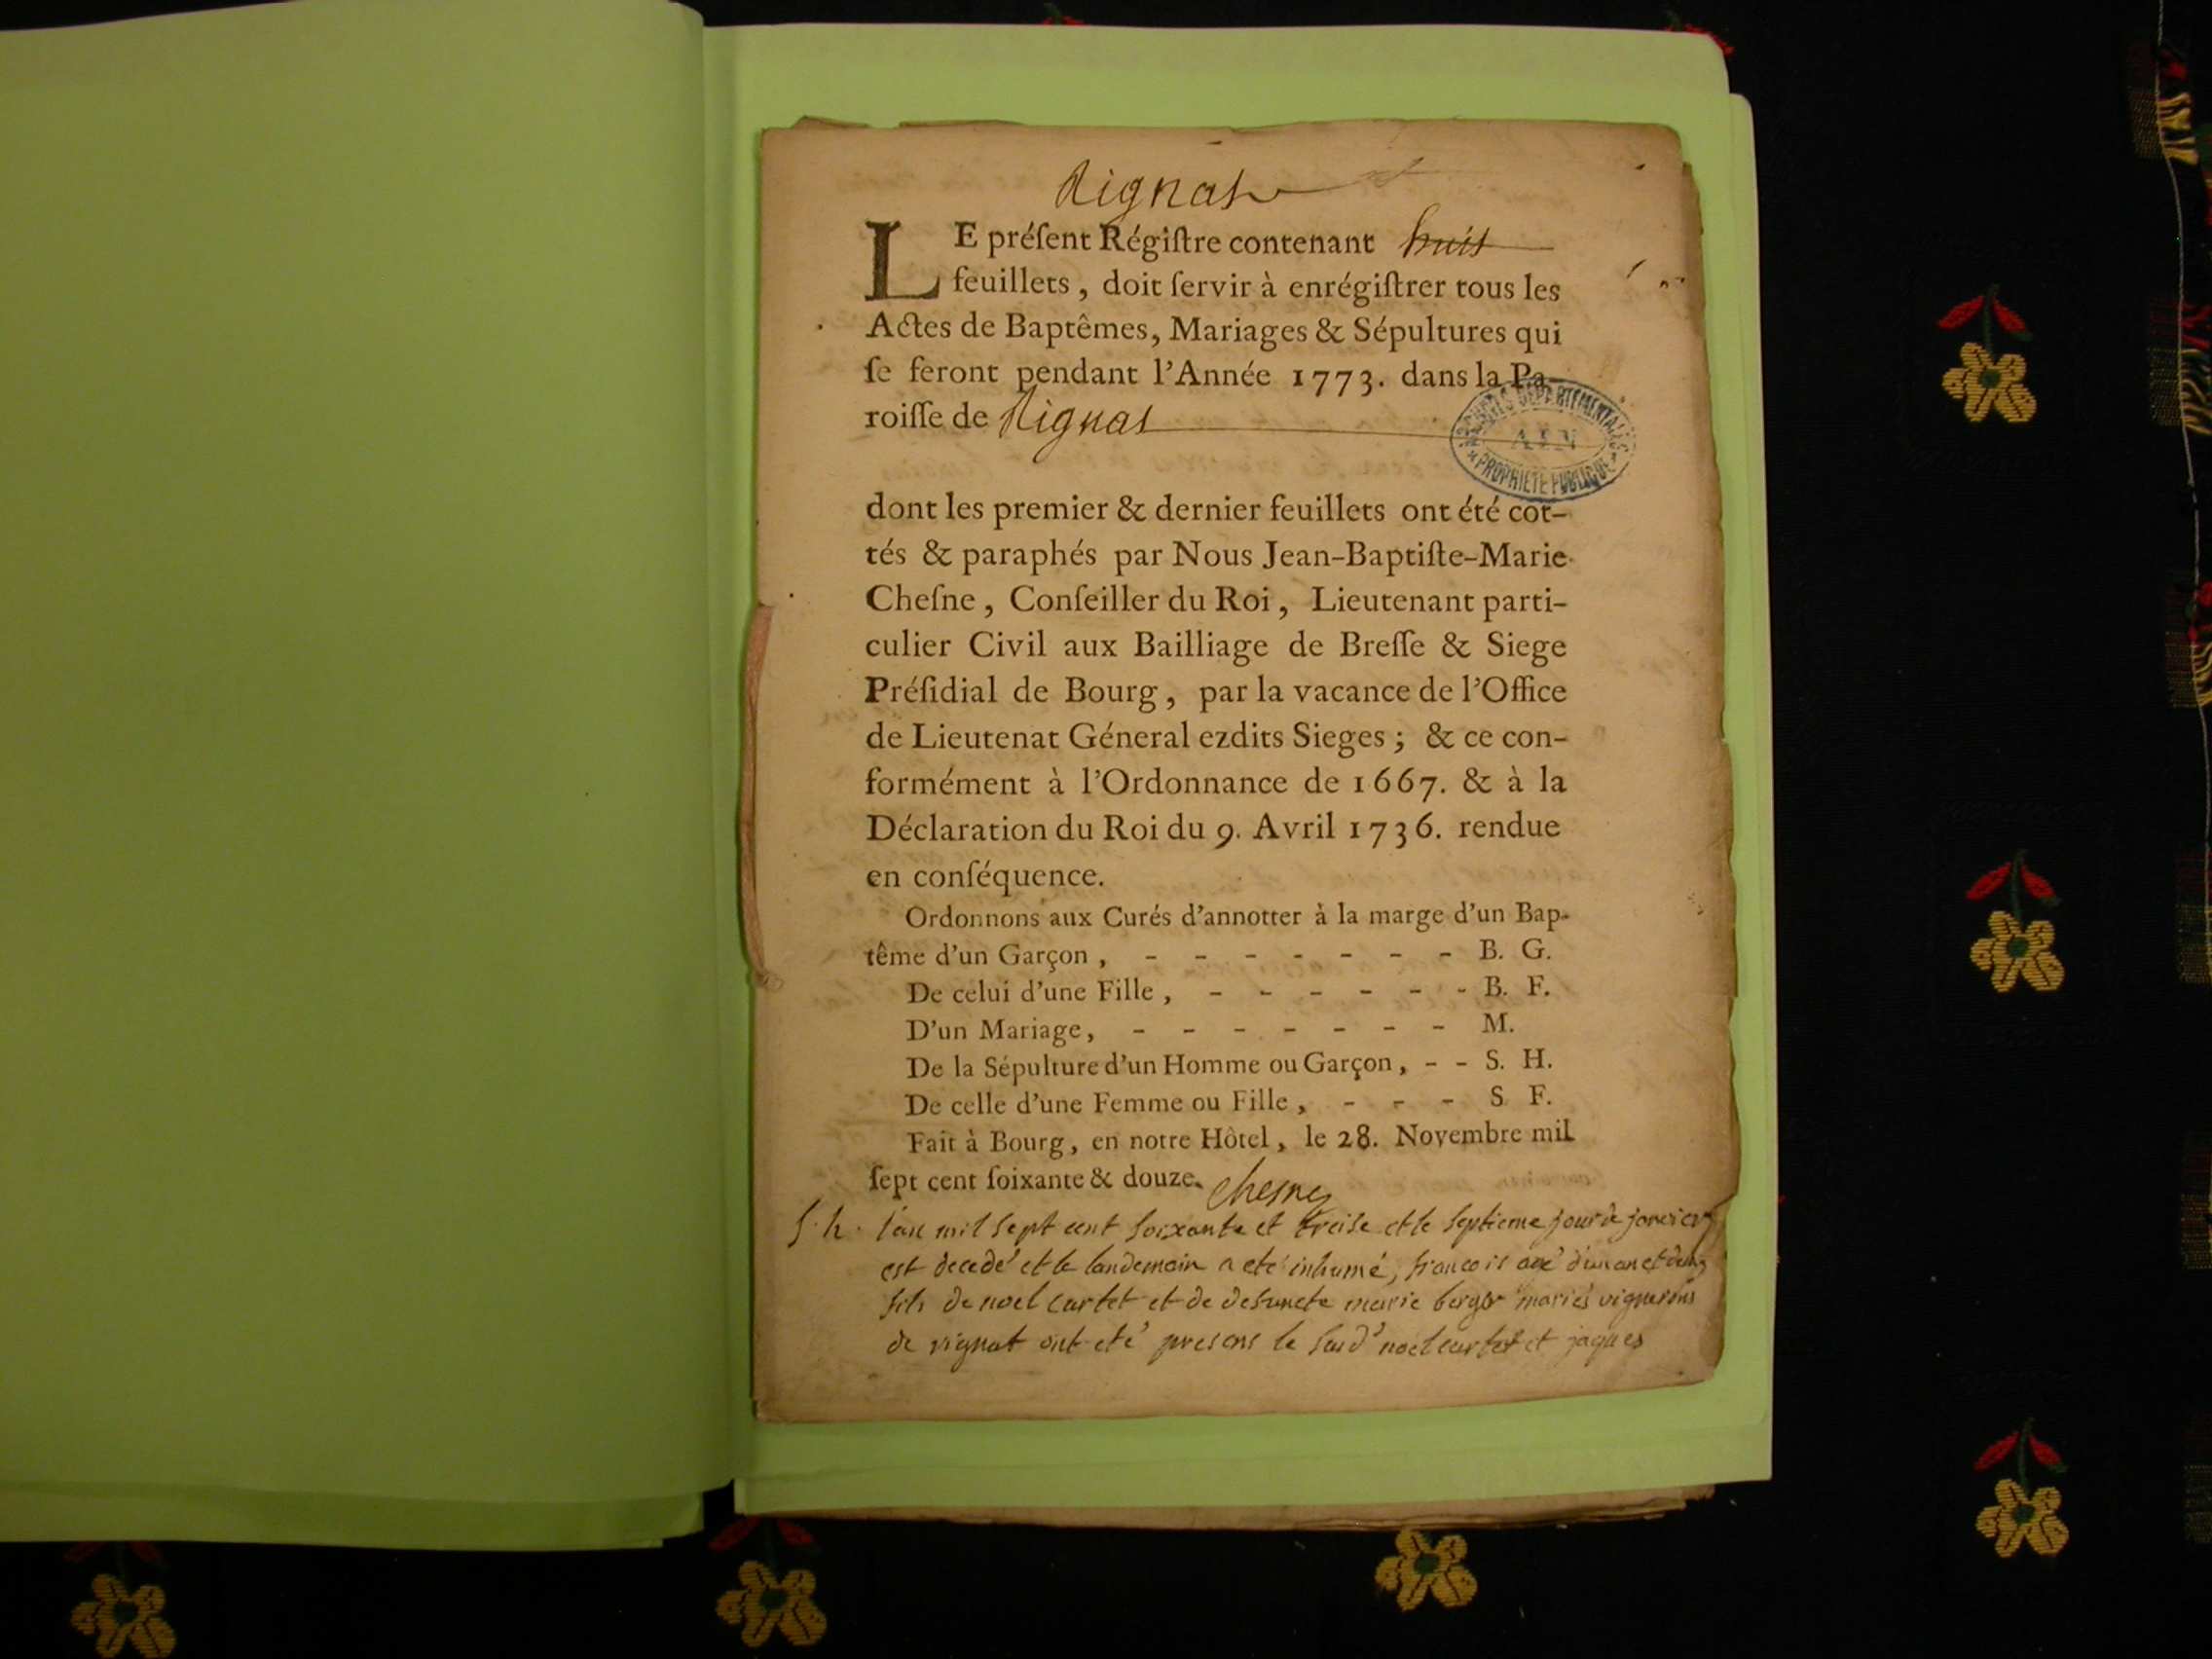 Rignat
LE préſent Régiſtre contenant huit
feuillets, doit ſervir à enrégiſtrer tous les
Actes de Baptêmes, Mariages & Sépultures qui
ſe feront pendant l'Année 1773. dans la Pa-
roiſſe de Rignat
ARCHIVES DEPARTEMENTALES
AIN
* PROPRIETE PUBLIQUE *
dont les premier & dernier feuillets ont été cot-
tés & paraphés par Nous Jean-Baptiſte-Marie
Cheſne, Conſeiller du Roi, Lieutenant parti-
culier Civil aux Bailliage de Breſſe & Siege
Préſidial de Bourg, par la vacance de l'Office
de Lieutenat Géneral ezdits Sieges; & ce con-
formément à l'Ordonnance de 1667. & à la
Déclaration du Roi du 9. Avril 1736. rendue
en conſéquence.
Ordonnons aux Curés d'annotter à la marge d'un Bap-
tême d'un Garçon, - - - - - - - B. G.
De celui d'une Fille, - - - - - - B. F.
D'un Mariage, - - - - - - - M.
De la Sépulture d'un Homme ou Garçon, - - S. H.
De celle d'une Femme ou Fille, - - - S F.
Fait à Bourg, en notre Hôtel, le 28. Novembre mil
ſept cent ſoixante & douze. Chesne
S. h. l'an mil sept cent soixante et treise et le septieme jour de janvier
est decedé et le landemain a eté inhumé, francois agé d'un an et demy
fils de noel cartet et de defuncte marie berger mariés vignerons
de rignat ont eté presens le sud' noel cartet et jaques